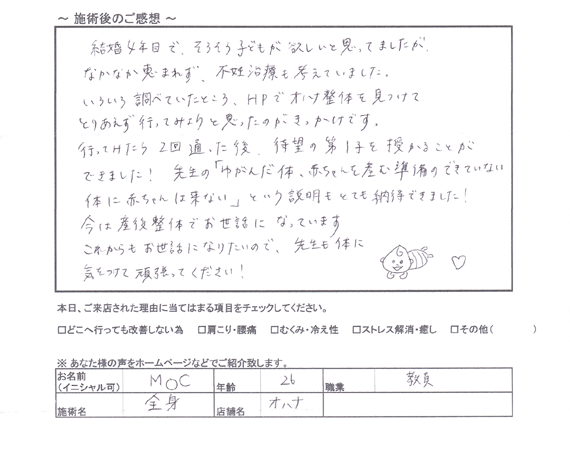 ～ 施術後のご感想 ～
結婚4年目で、そろそろ子どもが欲しいと思ってましたが、
なかなか恵まれず、不妊治療も考えていました。
いろいろ調べていたところ、HPでオハナ整体を見つけて
とりあえず行ってみようと思ったのがきっかけです。
行ってみたら2回通った後、待望の第1子を授かることが
できました！ 先生の「ゆがんだ体、赤ちゃんを産む準備のできていない
体に赤ちゃんは来ない」という説明もとても納得できました！
今は産後整体でお世話になっています
これからもお世話になりたいので、先生も体に
気をつけて頑張ってください！
本日、ご来店された理由に当てはまる項目をチェックしてください。
□どこへ行っても改善しない為 □肩こり・腰痛 □むくみ・冷え性 □ストレス解消・癒し □その他( )
※ あなた様の声をホームページなどでご紹介致します。
お名前 (イニシャル可) MOC 年齢 26 職業 教員
施術名 全身 店舗名 オハナ